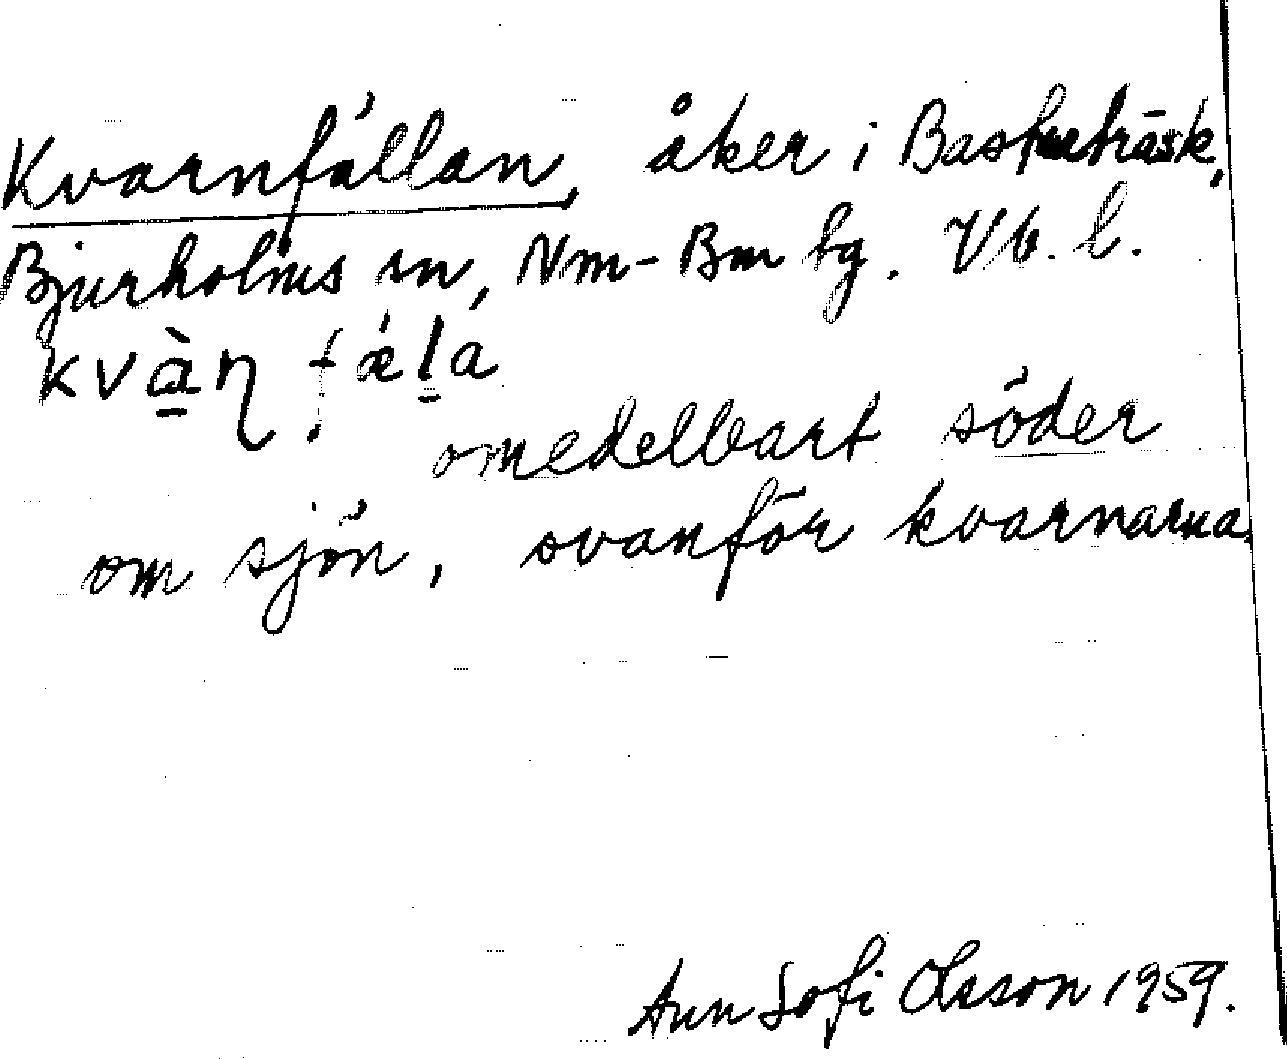 Kvarnfällan, åker i Bastuträsk,
Bjurholms sn, Nm-Bm tg. Vb. l.
kvàɳ fæ̀la
omedelbart söder
om sjön, ovanför kvarnarna.
Ann Sofi Olsson 1959.